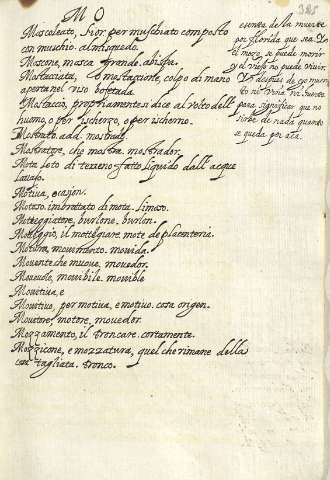 M O
385
Moscoleato, Fior per muschiato composto
con muschio. almiscuedo.
Moscone, mosca grande. abispa.
Mostacciata, mostaccione, colpo di mano
aperta nel viso bofetada
Mostaccio, propriamente si dice al volto dell'
huomo, o per ischerzo, o per ischerno.
Mostrato. add. mostrado.
Mostratore, che mostra. mostrador.
Mota loto di terreno fatto liquido dall' acque
lavato.
Motiva, ocasion.
Motoso. imbrattato di mota. limoso.
Motteggiatore, burlone, burlon.
Motteggio, il motteggiare. mote de placenteria.
Motura, movimento. movida.
Movente che muove. movedor.
Movevole, movibile. movible
Movitiva, e
Movitivo, per motiva, e motivo. cosa origen.
Movitore, motore, movedor.
Mozzamento, il troncare. cortamente.
Mozzicone, e mozzatura, quel che rimone della
cosa tagliata. tronco.
de la muerte
por florida que sea
el moro, se puede morir
y el viejo no puede vivir.
despues de yo muerto
ni viña ni huerto
para significar que no
sirbe de nada quanto
se queda por acá.